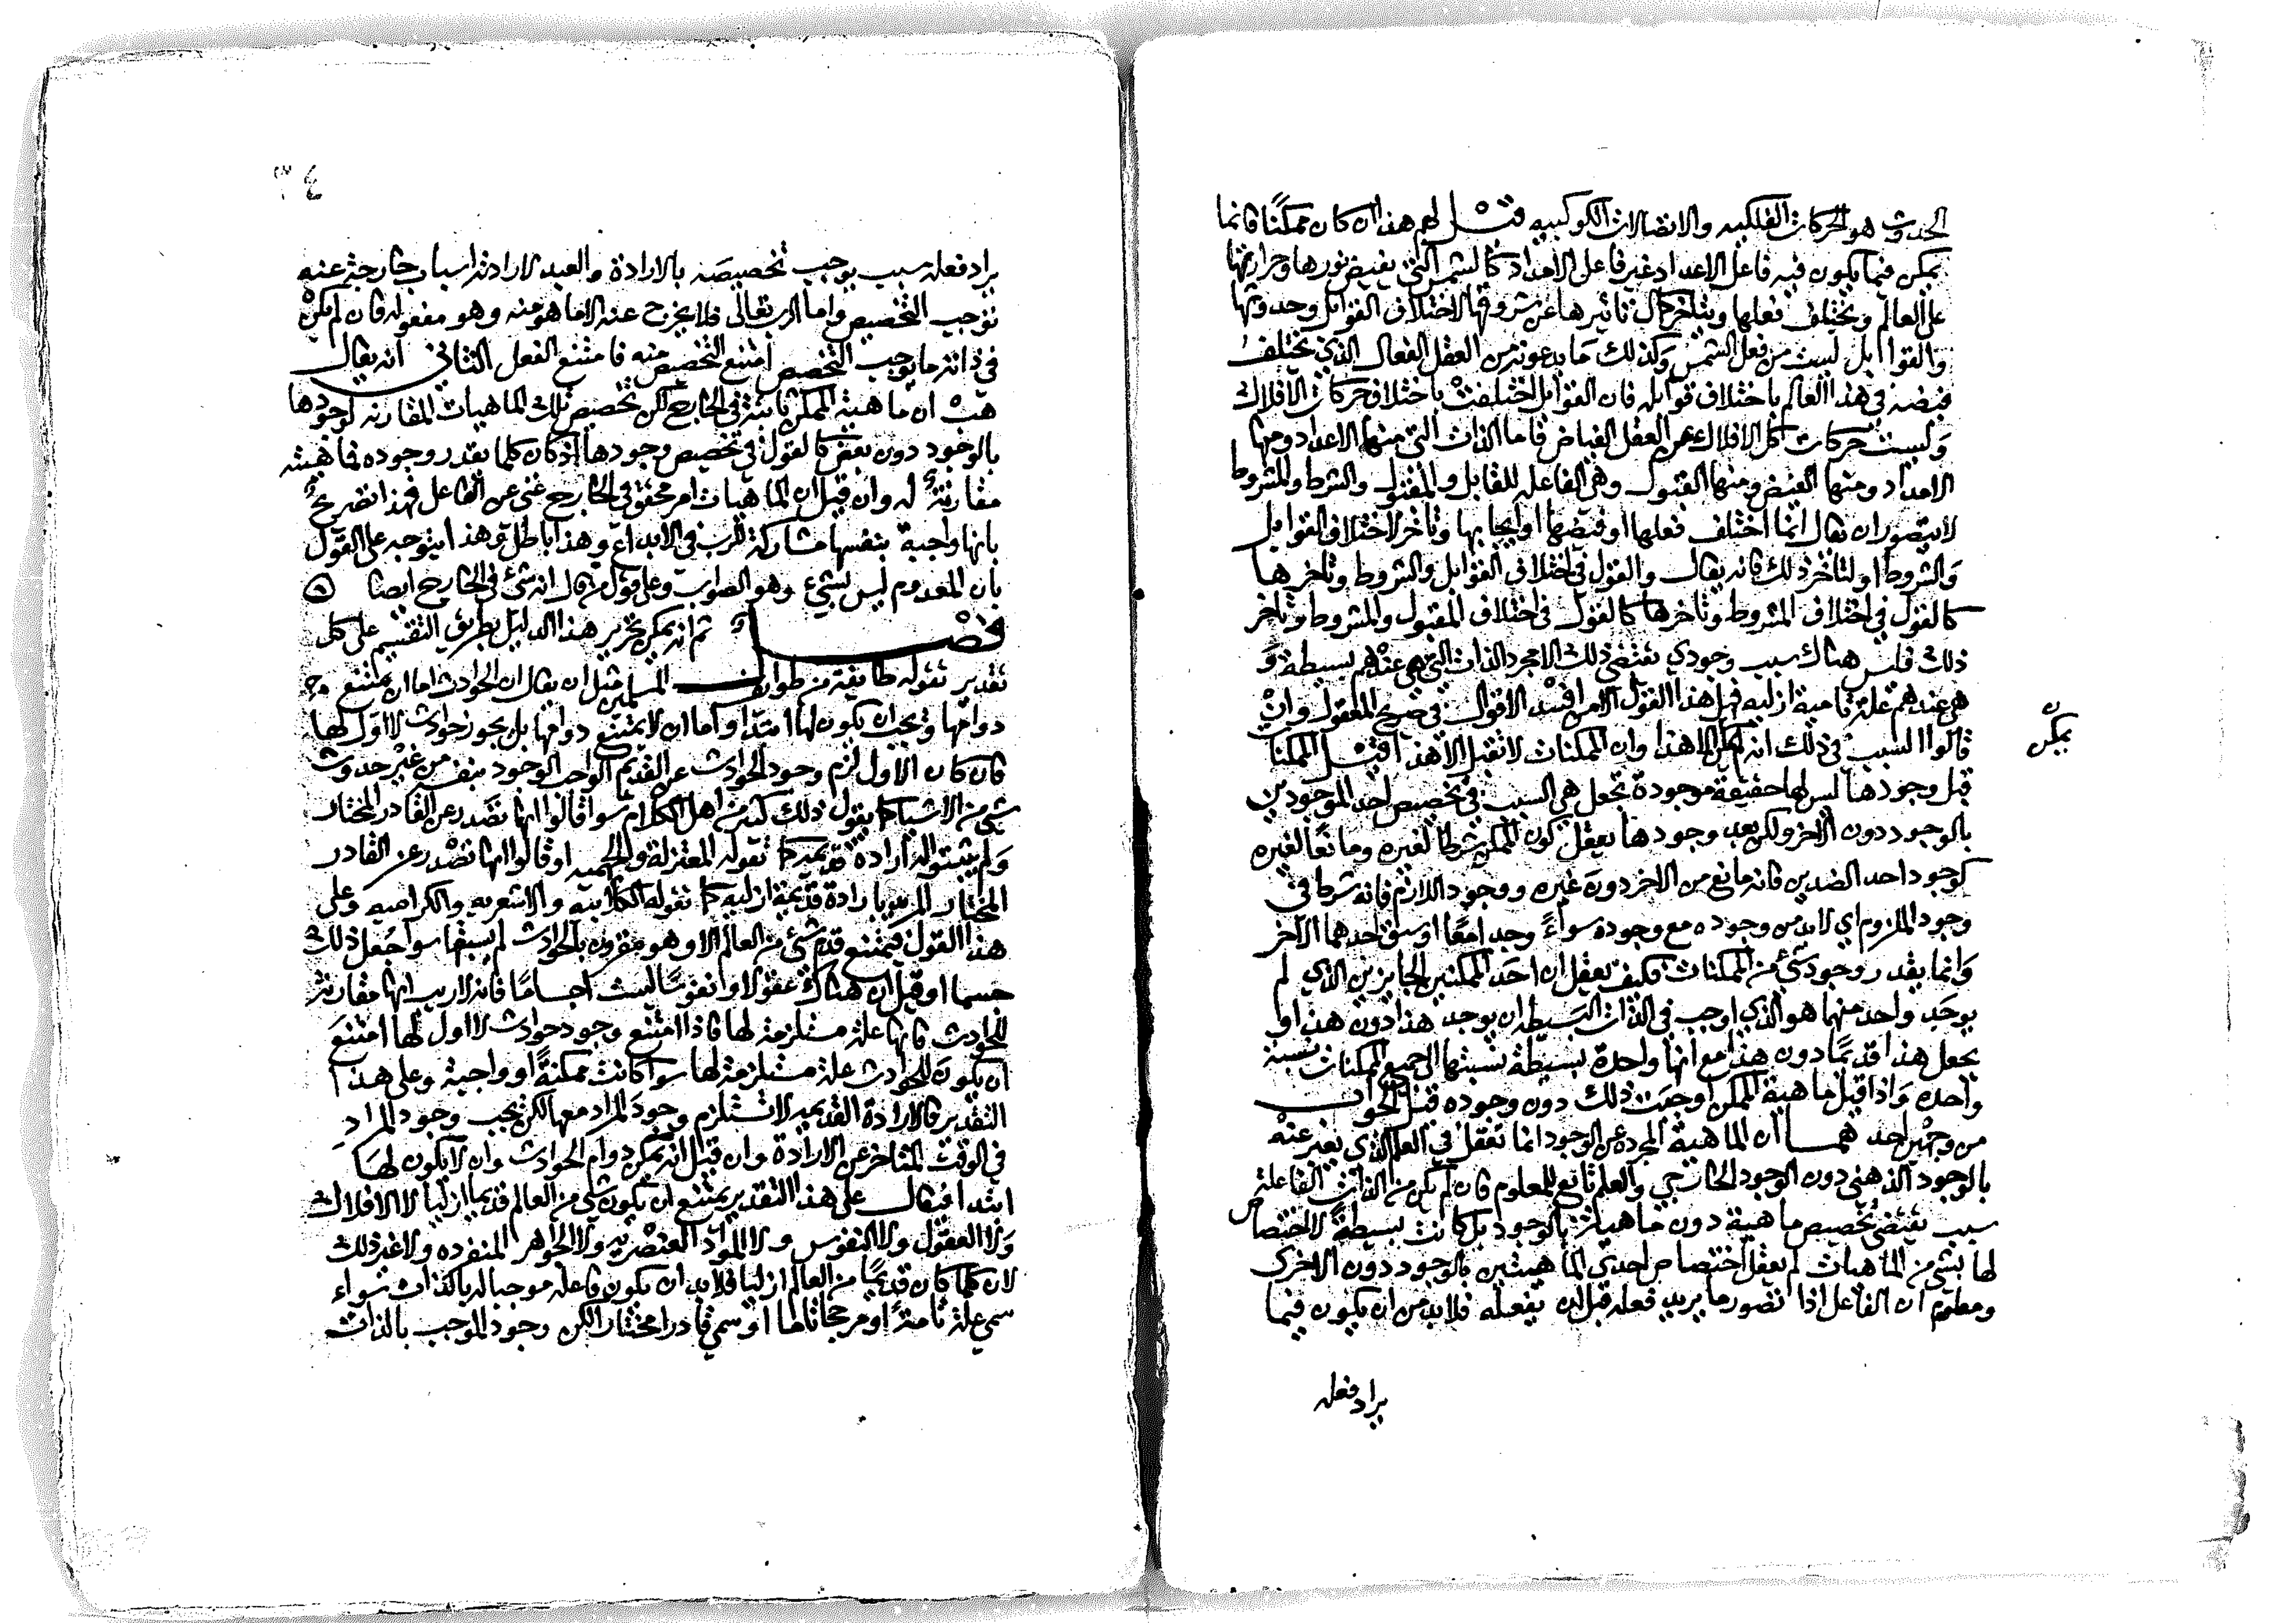 الحدوث هو الحركات الفلكيه والاتصالات الكوكبيه قيل لهم هذا ان كان ممكنًا فانما
يمكن فيما يكون فيه فاعل الاعداد غير فاعل الامداد كالشمس التي يفيض نورها وحرارتها
على العالم ويختلف فعلها ويتاخر كمال تاثيرها عن شروقها لاختلاف القوابل وحدوثها
والقوابل ليست من فعل الشمس وكذلك ما يدعونه من العقل الفعال الذي يختلف
فيضه في هذا العالم باختلاف قوابله فان القوابل اختلفت باختلاف حركات الافلاك
وليست حركات كل الافلاك عن العقل الفياض فاما الذات التي منها الاعداد ومنها
الامداد ومنها الفيض ومنها القبول وهي الفاعله للقابل والمقبول والشرط والمشروط
لا يتصور ان يقال انما اختلف فعلها او فيضها او ايجابها وتاخر لاختلاف القوابل
والشروط او لتاخر ذلك فانه يقال والقول في اختلاف القوابل والشروط وتاخرها
كالقول في اختلاف المشروط وتاخرها كالقول في اختلاف المقبول والمشروط وتاخر
ذلك فليس هناك سبب وجودي يقتضي ذلك الا مجرد الذات التي هي عندهم بسيطة و
هي عندهم علة تامة ازليه فهل هذا القول الا من افسد الاقوال في صريح المعقول وان
قالوا السبب في ذلك انه لم يكن الا هذا وان الممكنات لا تقبل الا هذا قيل الممكنا
يمكن
قبل وجودها ليس لها حقيقة موجودة تجعل هي السبب في تخصيص احد الموجودين
بالوجود دون الاخر ولكن بعد وجودها يعقل كون الممكن شرطا لغيره ومانعًا لغيره
كوجود احد الضدين فانه مانع من الاخر دون غيره ووجود اللازم فانه شرط في
وجود الملزوم اي لابد من وجوده مع وجوده سواءً وجدا معًا او سبق احدهما الآخر
وانما يقدر وجود شيء من الممكنات فكيف يعقل ان احد الممكنين الجايزين الذي لم
يوجد واحد منهما هو الذي اوجب في الذات البسيطه ان يوجد هذا دون هذا او
يجعل هذا قديمًا دون هذا مع انها واحدة بسيطة نسبتها الى جميع الممكنات نسبة
واحده واذا قيل ماهية الممكن اوجبت ذلك دون وجوده قيل الجواب
من وجهين احدهما ان الماهية المجرده عن الوجود انما تعقل في العلم الذي يعبر عنه
بالوجود الذهني دون الوجود الخارجي والعلم تابع للمعلوم فان لم يكن من الذات الفاعلة
سبب يقتضي تخصيص ماهية دون ماهية بالوجود بل كانت بسيطةً لا اختصاص
لها بشي من الماهيات لم يعقل اختصاص احدى الماهيتين بالوجود دون الاخرى
ومعلوم ان الفاعل اذا تصور ما يريد فعله قبل ان يفعله فلابد من ان يكون فيما
يراد فعله
٣٤
يراد فعله سبب يوجب تخصيصه بالارادة والعبد لارادته اسباب خارجة عنه
توجب التخصيص واما الرب تعالى فلا يخرج عنه الا ما هو منه وهو مفعوله فان لم يكن
في ذاته ما يوجب التخصيص امتنع التخصيص منه فامتنع الفعل الثاني انه يقال
هب ان ماهية الممكن ثابتة في الخارج لكن تخصيص تلك الماهيات المقارنه لوجودها
بالوجود دون بعض كالقول في تخصيص وجودها اذ كان كلما يقدر وجوده فماهيته
مقارنةٌ له وان قيل ان الماهيات امر محقق في الخارج غني عن الفاعل فهذا تصريحٌ
بانها واجبة بنفسها مشاركة للرب في الابداع وهذا باطل وهذا يتوجه على القول
بان المعدوم ليس بشيء وهو الصواب وعلى قول من قال انه شيء في الخارج ايضا
فصل ثم انه يمكن تحرير هذا الدليل بطريق التقسيم على كل
تقدير تقوله طايفة من طوايف المسلمين مثل ان يقال ان الحوادث اما ان يمتنع
دوامها ويجب ان يكون لها ابتداء واما ان لا يمتنع دوامها بل يجوز حوادث لا اوّل لها
فان كان الاول لزم وجود الحوادث عن القديم الواجب الوجود بنفسه من غير حدوث
شيء من الاشياء كما يقول ذلك كثير من اهل الكلام سوا قالوا انها تصدر عن القادر المختار
ولم يثبتوا له ارادة قديمه كما تقوله المعتزلة والجهميه او قالوا انها تصدر عن القادر
المختار المريد بارادة قديمة ازليه كما تقوله الكلابيه والاشعريه والكراميه وعلى
هذا القول فيمتنع قدم شيء من العالم الا وهو مقرون بالحوادث لم يسبقها سوا جعل ذلك
جسما او قيل ان هناك عقولا ونفوسًا ليست اجسامًا فانه لاريب انها مقارنة
للحوادث فانها علة مستلزمة لها فاذا امتنع وجود حوادث لا اول لها امتنع
ان يكون للحوادث علة مستلزمة لها سوا كانت ممكنةً او واجبة وعلى هذا
التقدير فالارادة القديمه لا تستلزم وجود المراد معها لكن يجب وجود المراد
في الوقت المتاخر عن الارادة وان قيل انه يمكن دوام الحوادث وان لا يكون لها
ابتدا فيقال على هذا التقدير يمتنع ان يكون شي من العالم قديما ازليا لا الافلاك
ولا العقول ولا النفوس ولا المواد العنصريه ولا الجواهر المنفرده ولا غير ذلك
لان كلما كان قديمًا من العالم ازليا فلابد ان يكون فاعله موجبا له بالذات سواء
سمي علة تامةً او مرجحا تاما او سمي قادرا مختارا لكن وجود الموجب بالذات